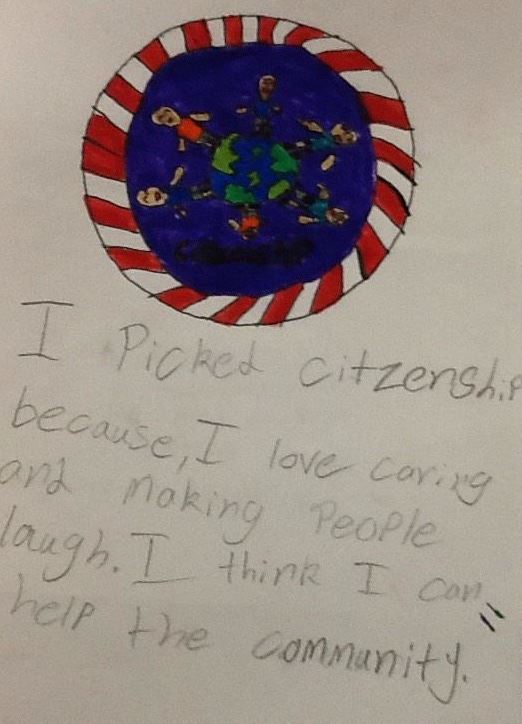 I Picked citzenship
because, I love caring
and making People
laugh. I think I can
help the community.